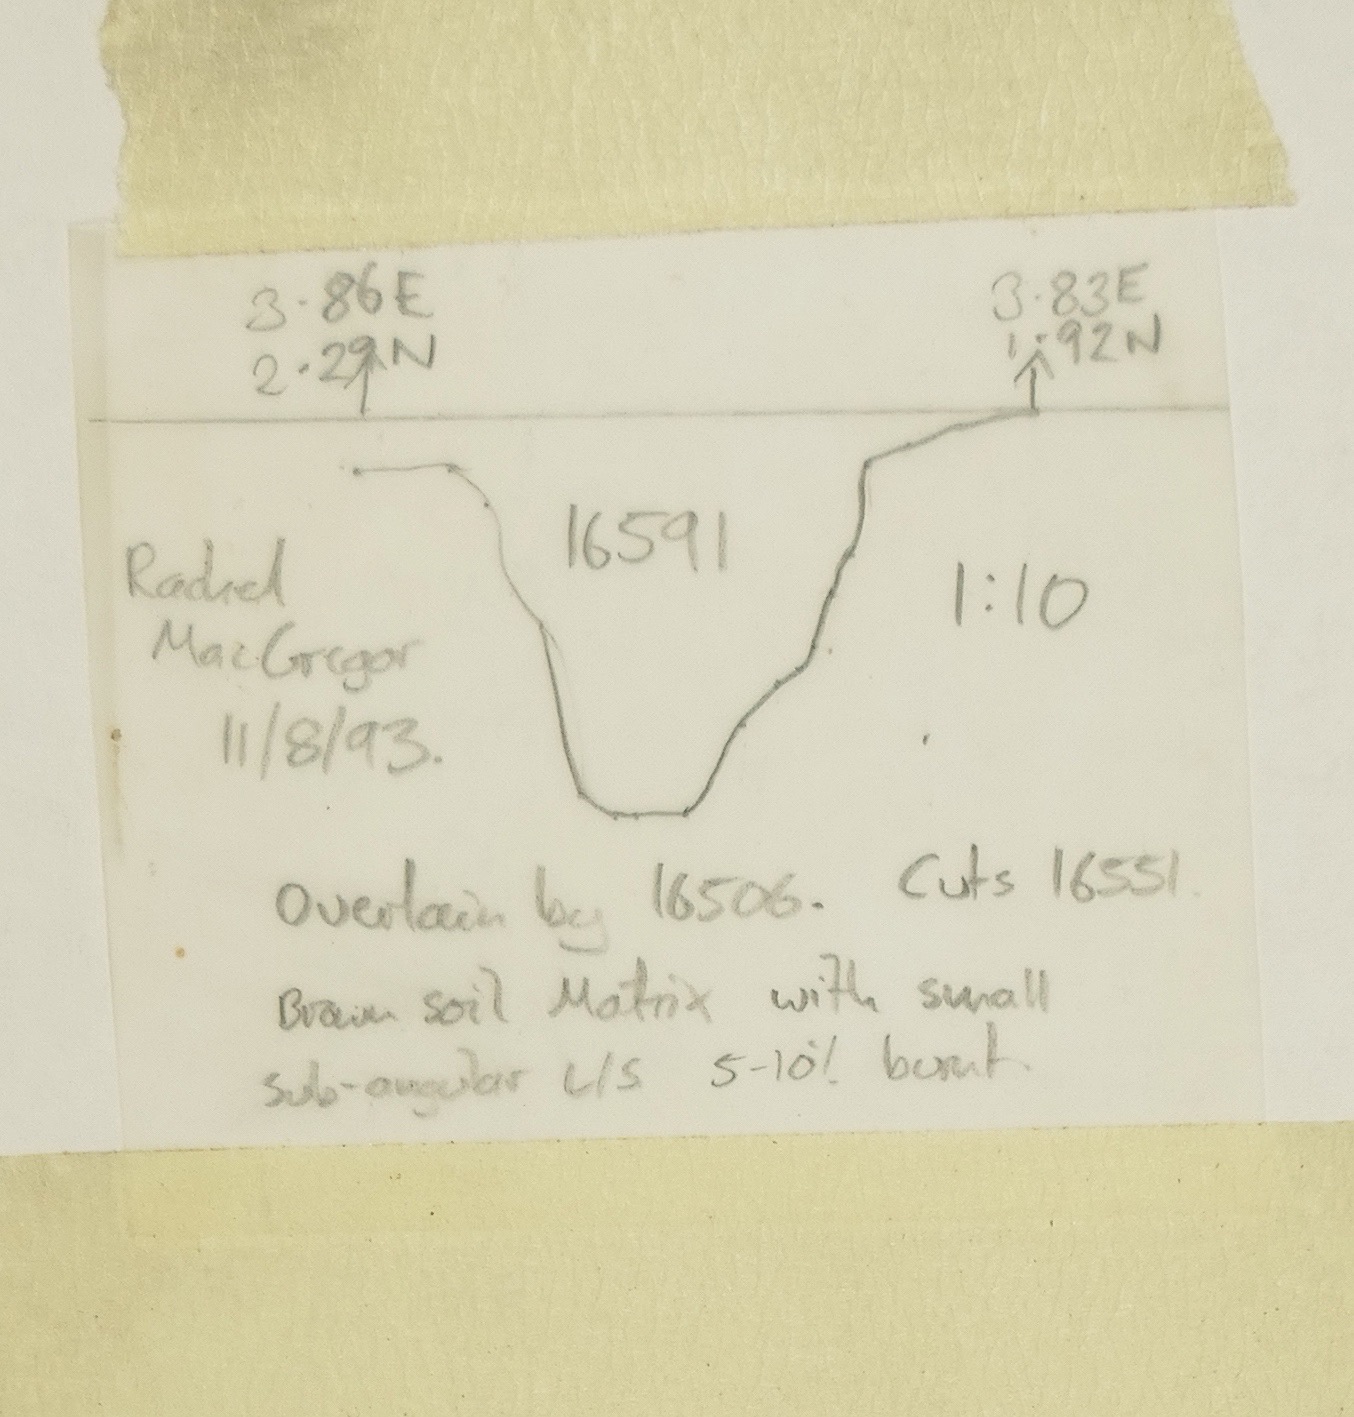 3.86E
2.29N
3.83E
1.92N
16591
1:10
Rachel
MacGregor
11/8/93.
Overlain by 16506. Cuts 16551.
Brown soil Matrix with small
sub-angular L/S 5-10% burnt.